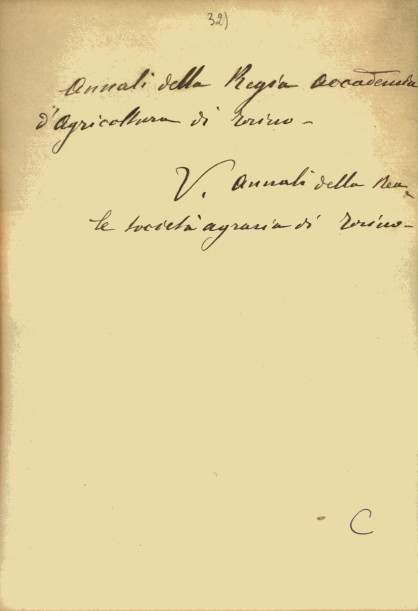 32)
Annali della Regia accademia
d'agricoltura di Torino -
V. Annali della Rea-
le società agraria di Torino -
C